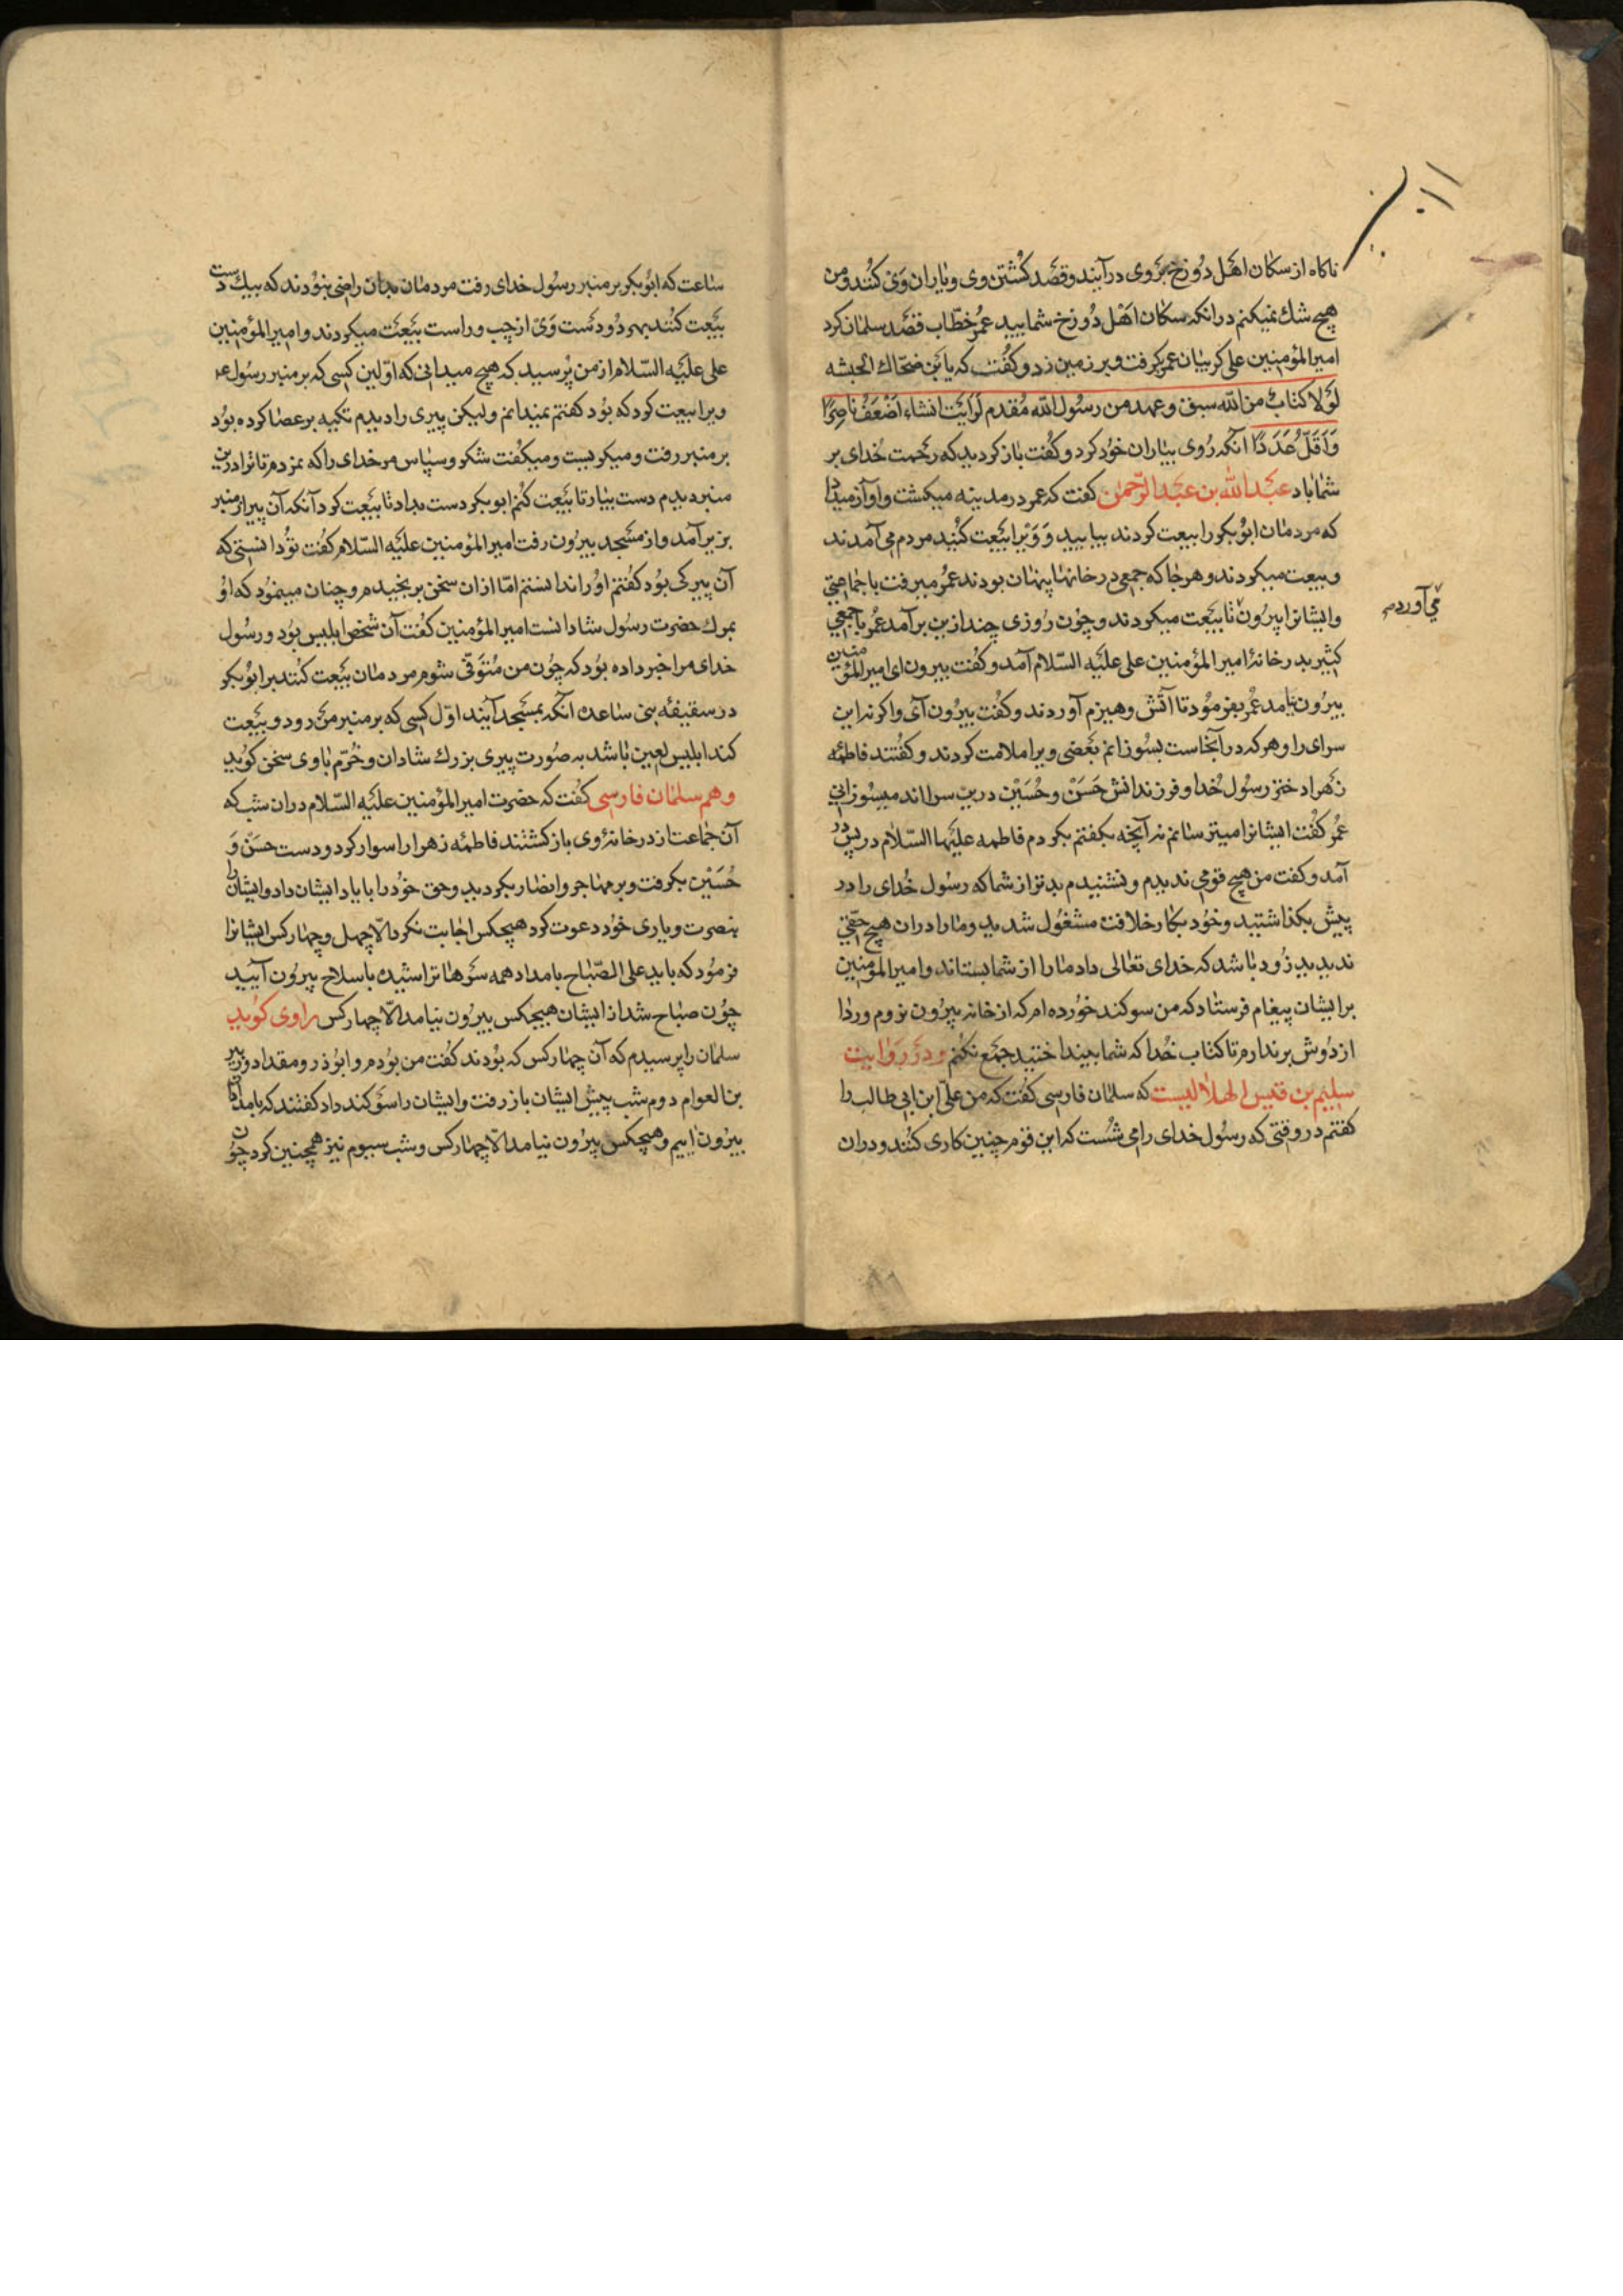 ناکاه از سکان اهل دوزخ بروی درآیند و قصد کشتن وی و یاران وی کنند و من
هیچ شك نمیکنم در آنکه سکان اهل دوزخ شمایید عمر خطاب قصد سلمان کرد
امیرالمؤمنین علی کریبان عمر بکرفت و بر زمین زد و کفت که یابن ضحاك الحبشه
لولا کتاب من الله سبق و عهد من رسول الله مقدم لرایت انشاء اضعف ناصرًا
و اقل عددًا آنکه روی بیاران خود کرد و کفت باز کردید که رحمت خدای بر
شما باد عبدالله بن عبدالرحمن کفت که عمر در مدینه میکشت و اواز میداد
که مردمان ابوبکر را بیعت کردند بیایید و ویرا بیعت کنید مردم می آمدند
و بیعت میکردند و هر جا که جمعی در خانها پنهان بودند عمر میرفت با جماعتی
و ایشانرا بیرون تا بیعت میکردند و چون روزی چند ازین برآمد عمر با جمعی
می آوردم
کثیر بدر خانهٔ امیرالمؤمنین علی علیه السلام آمد و کفت بیرون ای امیرالمؤمنین
بیرون نیامد عمر بفرمود تا آتش و هیزم آوردند و کفت بیرون آی واکرنه این
سرای را و هر که در آنجاست بسوزانم بعضی ویرا ملامت کردند و کفتند فاطمه
زهرا دختر رسول خدا و فرزندانش حسن و حسین درین سرااند میسوزانی
عمر کفت ایشانرا میترسانم نه آنچه بکفتم بکردم فاطمه علیها السلام در پس در
آمد و کفت من هیچ قومی ندیدم و نشنیدم بدتر از شما که رسول خدای را در
پیش بکذاشتید و خود بکار خلافت مشغول شدید و ما را در ان هیچ حقی
ندیدید زود باشد که خدای تعالی داد ما را از شما بستاند و امیرالمؤمنین
بر ایشان پیغام فرستاد که من سوکند خورده ام که از خانه بیرون نروم و ردا
از دوش بر ندارم تا کتاب خدا که شما بینداختید جمع نکنم و در روایت
سلیم بن قیس الهلالیست که سلمان فارسی کفت که من علی ابن ابی طالب را
کفتم در وقتی که رسول خدای را می شست که این قوم چنین کاری کنند و دران
ساعت که ابوبکر بر منبر رسول خدای رفت مردمان بدان راضی نبودند که بیك دست
بیعت کنند بهر دو دست وی از چپ و راست بیعت میکردند و امیرالمؤمنین
علی علیه السلام از من پرسید که هیچ میدانی که اولین کسی که بر منبر رسول
ویرا بیعت کرد که بود کفتم نمیدانم ولیکن پیری را دیدم تکیه بر عصا کرده بود
بر منبر رفت و میکریست و میکفت شکر و سپاس مر خدای را که نمردم تا ترا درین
منبر دیدم دست بیار تا بیعت کنم ابوبکر دست بداد تا بیعت کرد آنکه آن پیر از منبر
بزیر آمد و از مسجد بیرون رفت امیرالمؤمنین علیه السلام کفت تو دانستی که
آن پیر کی بود کفتم او را ندانستم اما از ان سخن برنجیدم و چنان مینمود که او
بمرك حضرت رسول شادانست امیرالمؤمنین کفت آن شخص ابلیس بود و رسول
خدای مرا خبر داده بود که چون من متوفی شوم مردمان بیعت کنند بر ابوبکر
در سقیفهٔ بنی ساعده آنکه بمسجد آیند اول کسی که بر منبر من رود و بیعت
کند ابلیس لعین باشد به صورت پیری بزرك شادان و خرم با وی سخن کوید
و هم سلمان فارسی کفت که حضرت امیرالمؤمنین علیه السلام دران شب که
آن جماعت از در خانهٔ وی باز کشتند فاطمهٔ زهرا را سوار کرد و دست حسن و
حسین بکرفت و بر مهاجر و انصار بکردید و حق خود را با یاد ایشان داد و ایشان را
بنصرت و یاری خود دعوت کرد هیچکس اجابت نکرد الا چهل و چهار کس ایشانرا
فرمود که باید علی الصباح بامداد همه سرها تراشیده با سلاح بیرون آیید
چون صباح شد از ایشان هیچکس بیرون نیامد الا چهار کس راوی کوید
سلمان را پرسیدم که آن چهار کس که بودند کفت من بودم و ابوذر و مقداد و زبیر
بن العوام دوم شب پیش ایشان باز رفت و ایشان را سوکند داد کفتند که بامداد
بیرون آییم و هیچکس بیرون نیامد الا چهار کس و شب سیوم نیز همچنین کرد چون